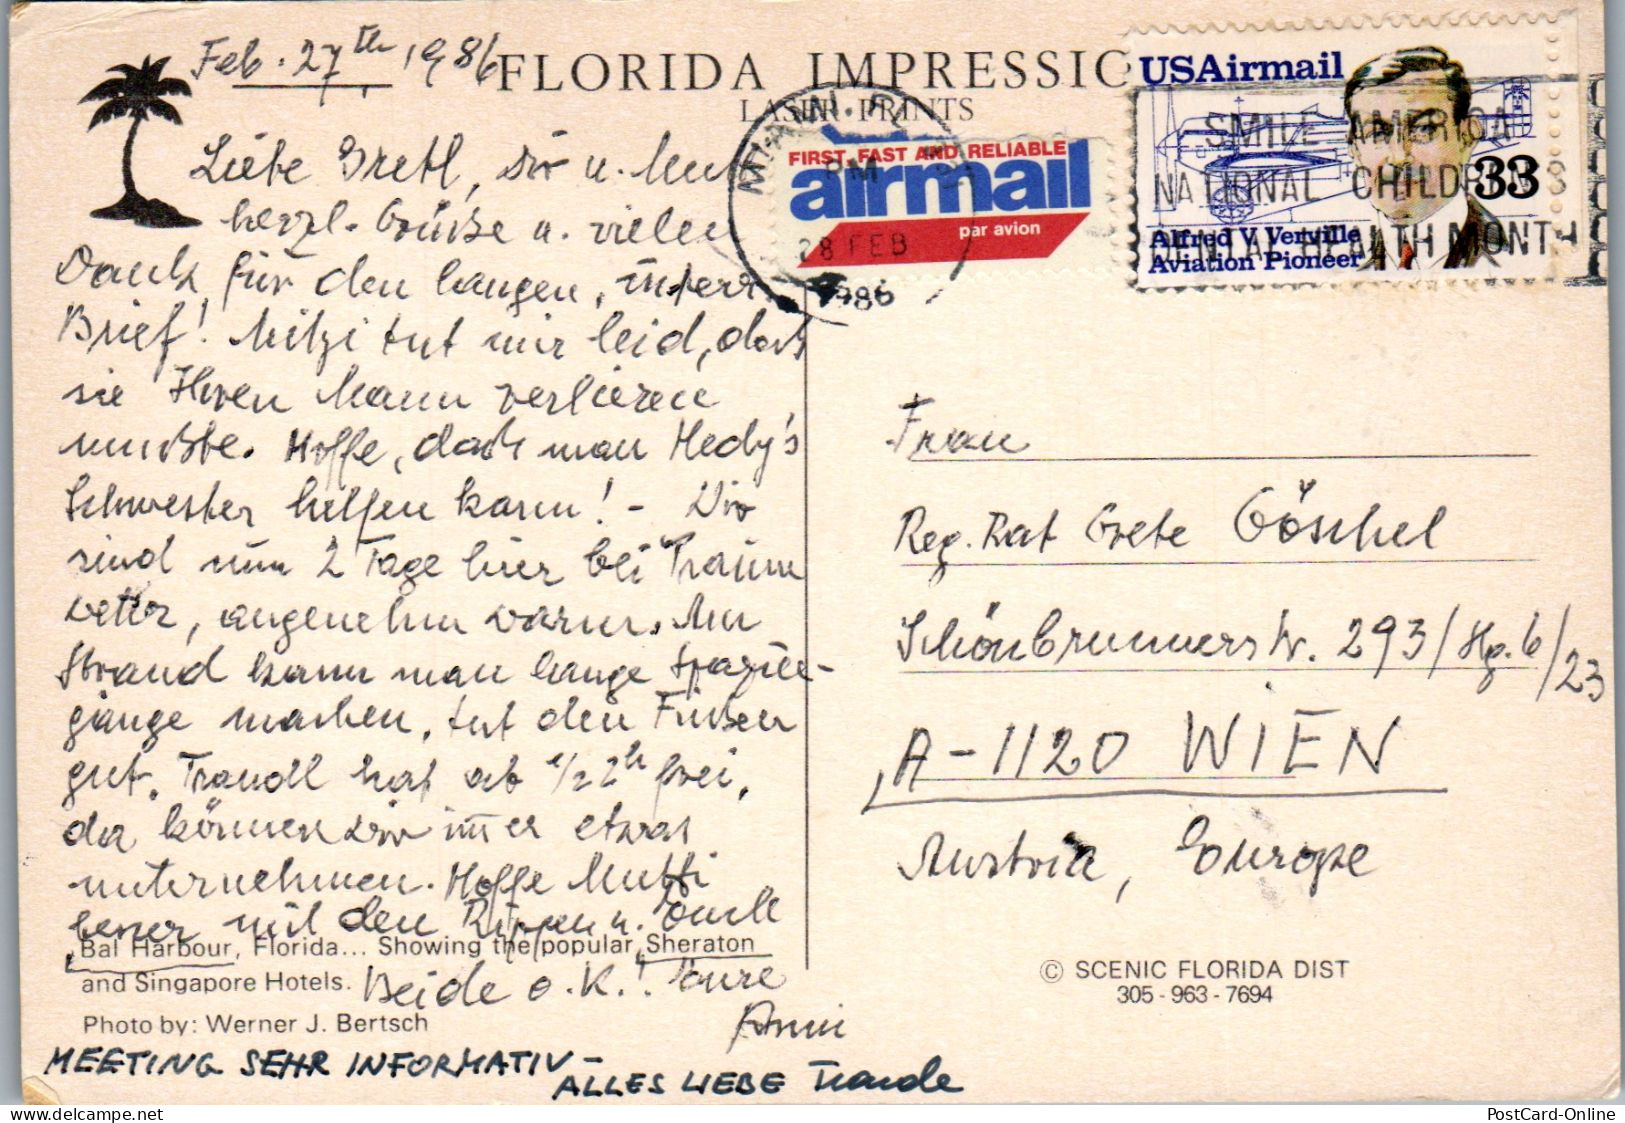 Feb. 27th, 1986
FLORIDA IMPRESSIO
LASER PRINTS
Liebe Gretl, Dir u. Mutti
herzl. Grüße u. vielen
Dank für den langen, interr.
Brief! Mitzi tut mir leid, daß
sie Ihren Mann verlieren
mußte. Hoffe, daß man Hedy's
Schwester helfen kann! - Wir
sind nun 2 Tage hier bei Traum
wetter, angenehm warm. Am
Strand kann man lange Spazier-
gänge machen, tut den Füßen
gut. Traudl hat ab 1/2 2h frei,
da können wir immer etwas
unternehmen. Hoffe Mutti
besser mit den Rippen u. Euch
Beide o.K.! Eure
Anni
Bal Harbour, Florida... Showing the popular Sheraton
and Singapore Hotels.
Photo by: Werner J. Bertsch
MEETING SEHR INFORMATIV –
ALLES LIEBE Traude
FIRST, FAST AND RELIABLE
airmail
par avion
MIAMI, FL
PM
28 FEB
1986
USAirmail
33
Alfred V. Verville
Aviation Pioneer
SMILE AMERICA
NATIONAL CHILDREN'S
DENTAL HEALTH MONTH
Frau
Reg. Rat Grete Göschel
Schönbrunnerstr. 293/Hg.6/23
A-1120 WIEN
Austria, Europe
© SCENIC FLORIDA DIST
305-963-7694
PostCard-Online